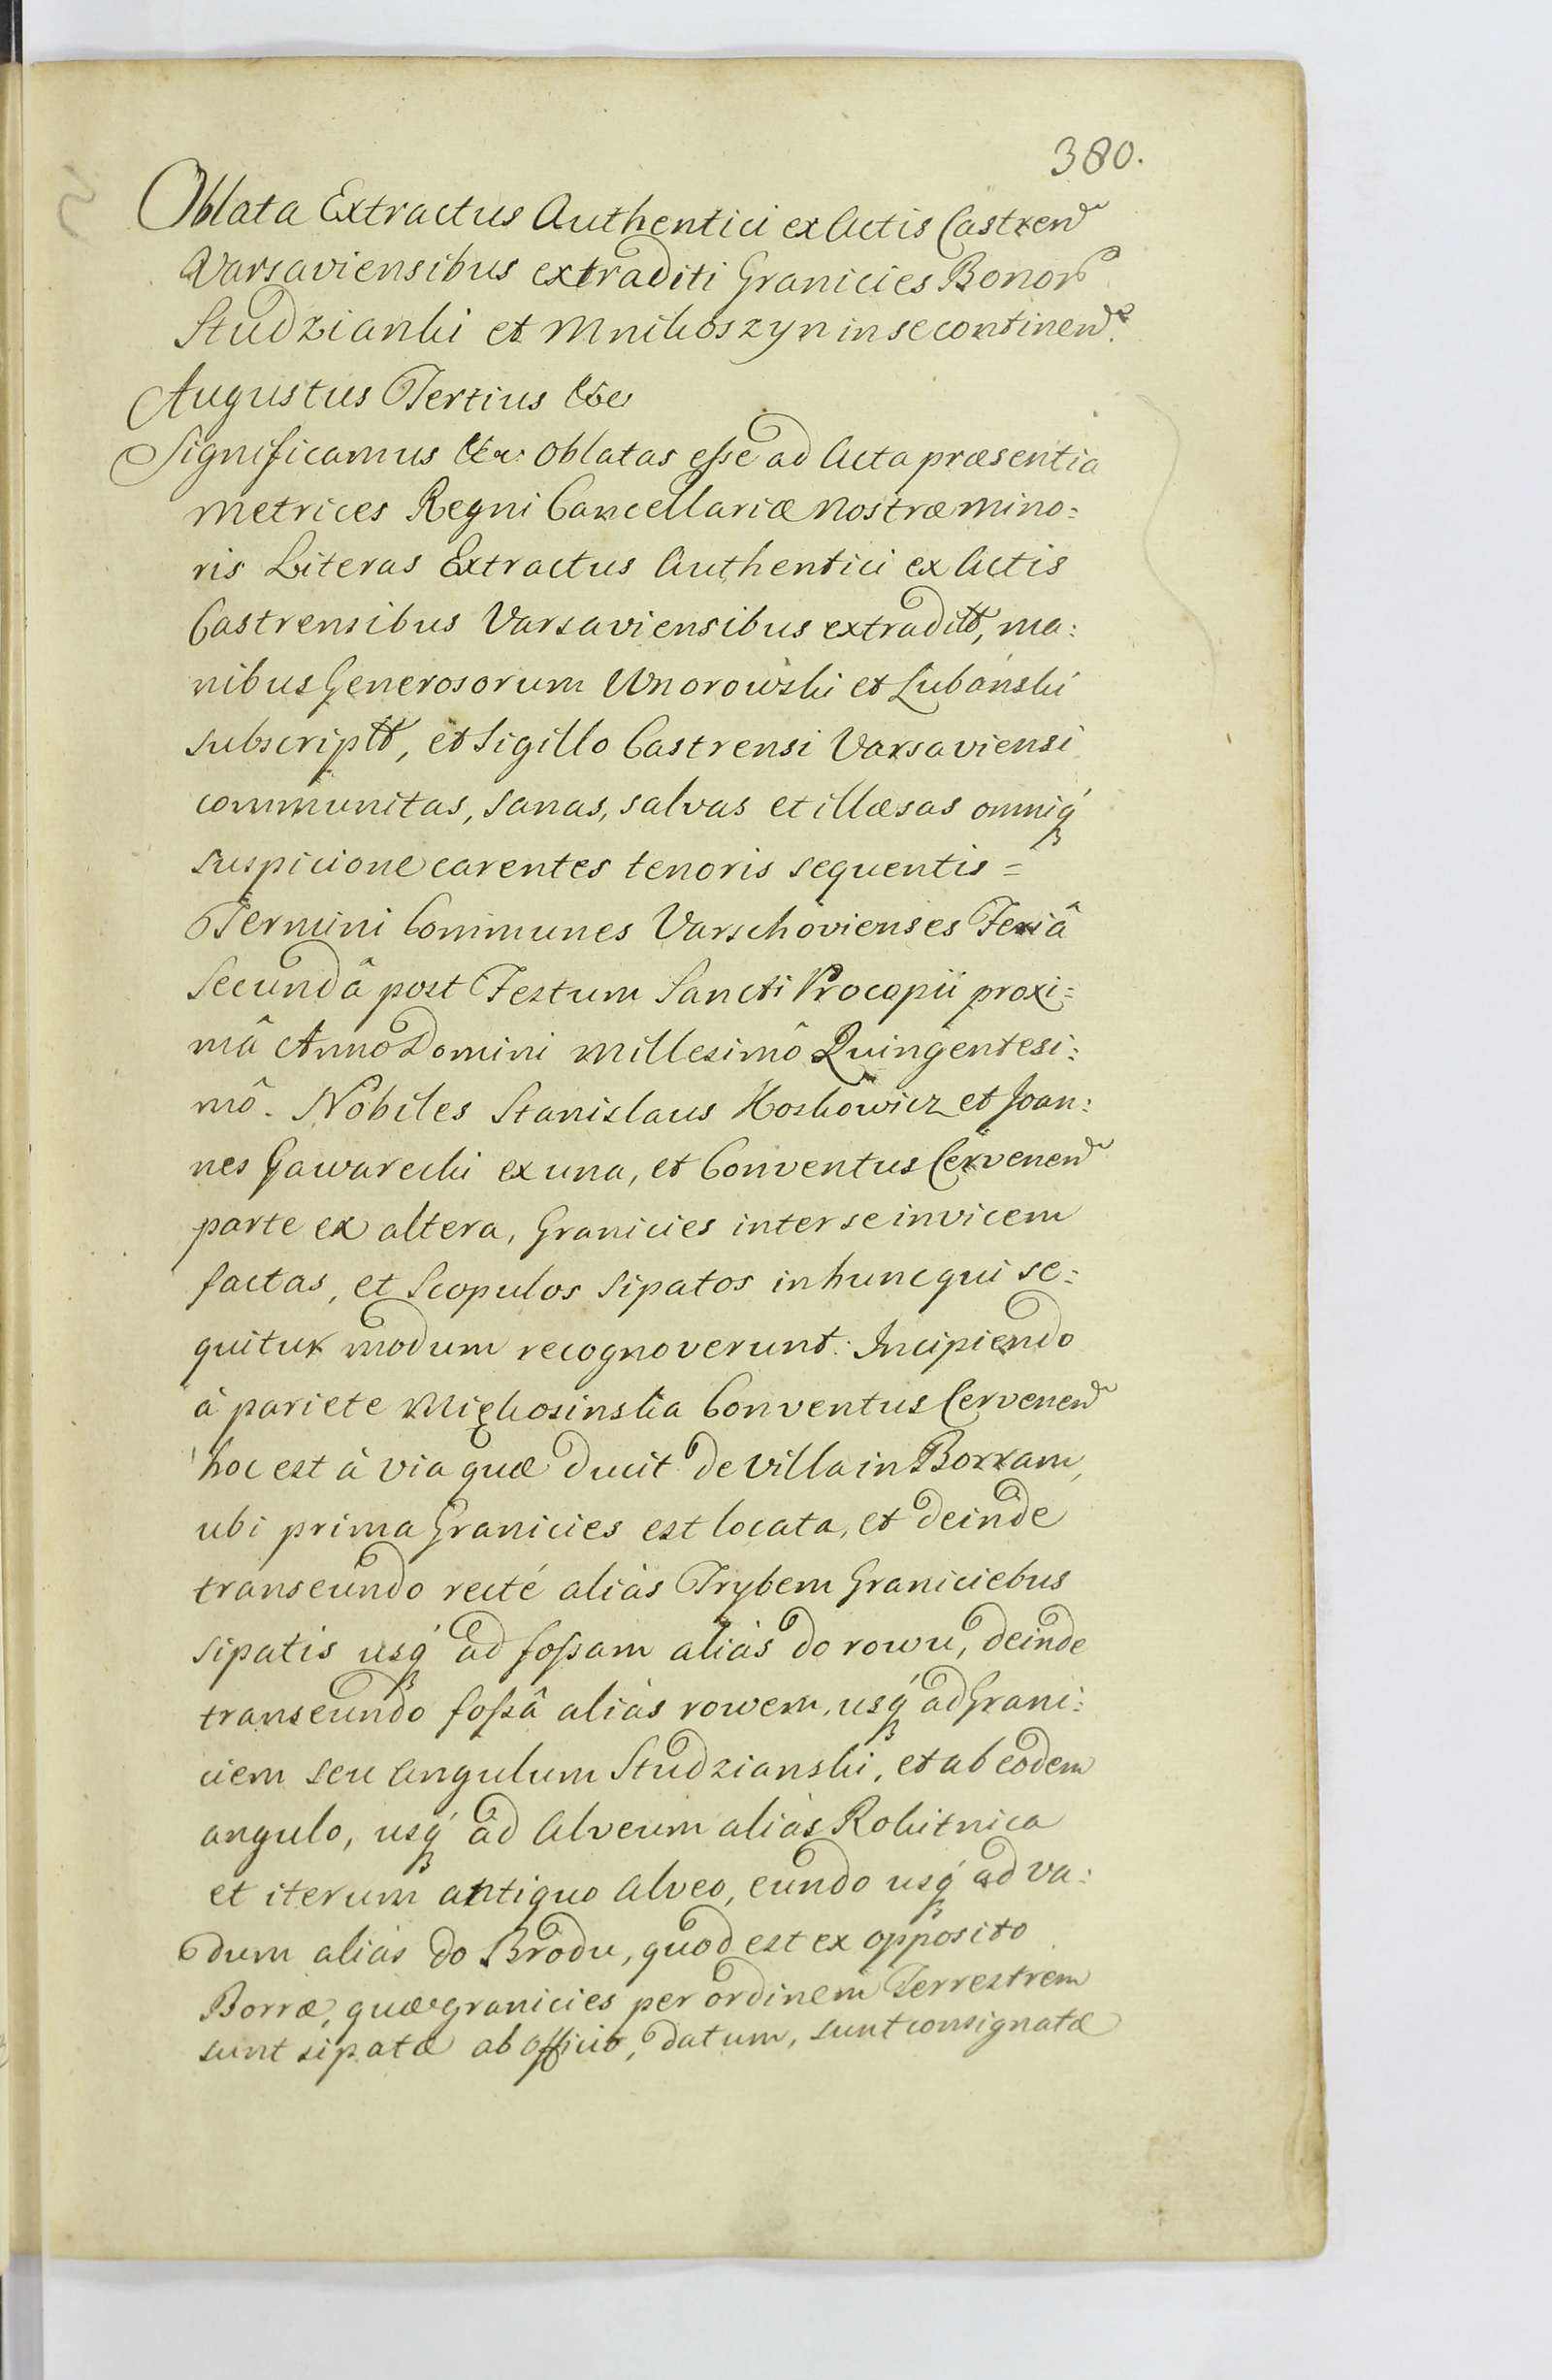 380.
Oblata Extractus Authentici ex Actis Castren
Varsaviensibus extraditi Granicies Bonor
Studzianki et Mnikoszyn in se continen.
Augustus Tertius &c
Significamus &c: Oblatas esse ad Acta præsentia
Metrices Regni Cancellariæ Nostræ Mino:
ris Literas Extractus Authentici ex Actis
Castrensibus Varsaviensibus extraditt, ma:
nibus Generosorum Wnorowski et Lubański
subscriptt, et Sigillo Castrensi Varsaviensi
communitas, sanas, salvas et illæsas omniq́
suspicione carentes tenoris sequentis =
Termini Communes Varschovienses Feriâ
Secundâ post Festum Sancti Procopii proxi:
mâ Anno Domini Millesimô Quingentesi:
mô. Nobiles Stanislaus Koskowicz et Joan:
nes Gawarecki ex una, et Conventus Cervenen
parte ex altera, Granicies inter se invicem
factas, et Scopulos Sipatos in hunc qui se:
quitur modum recognoverunt: Incipiendo
à pariete Mięhosinska Conventus Cervenen
hoc est à via quæ ducit de Villa in Borram,
ubi prima Granicies est locata, et deinde
transeundo recté aliàs Trybem Graniciebus
sipatis usq́ ad fossam aliàs do rowu, deinde
transeundo fossâ aliàs rowem, usq́ ad Grani:
ciem seu Angulum Studzianski, et ab eodem
angulo, usq́ ad Alveum aliàs Rokitnica
et iterum antiquo Alveo, eundo usq́ ad va:
dum aliàs do Brodu, quod est ex opposito
Borræ, quæ granicies per ordinem Terrestrem
sunt sipatæ ab Officio, datum, sunt consignatæ